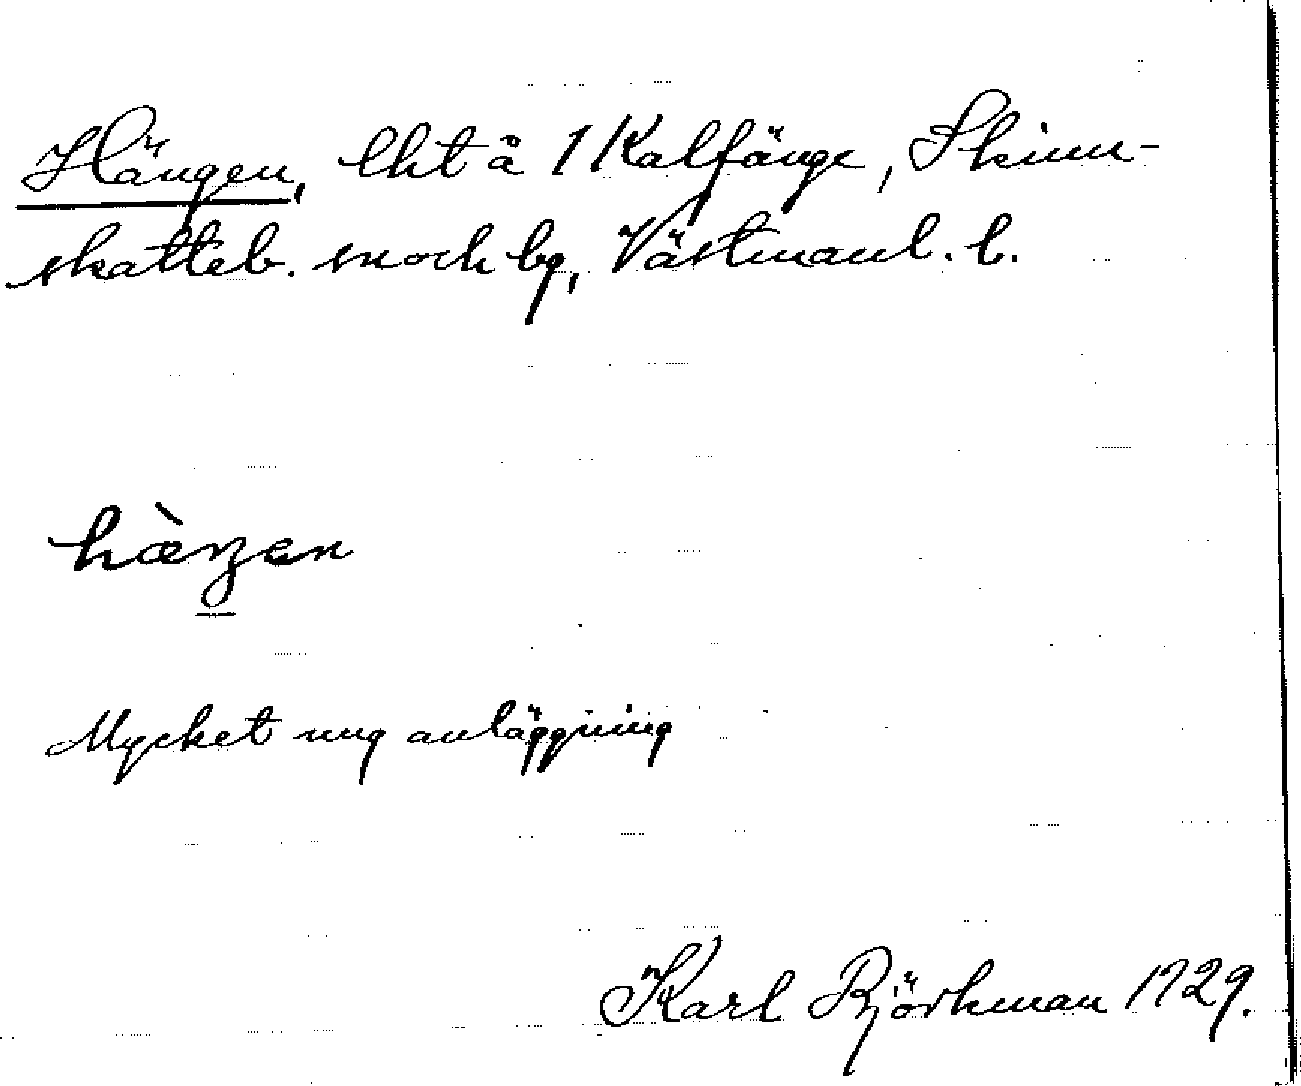 Hängen, lht å 1 Kalfänge, Skinn-
skatteb. sock by, Västmanl. l.
hæ̀ŋen
Mycket ung anläggning
Karl Björkman 1929.